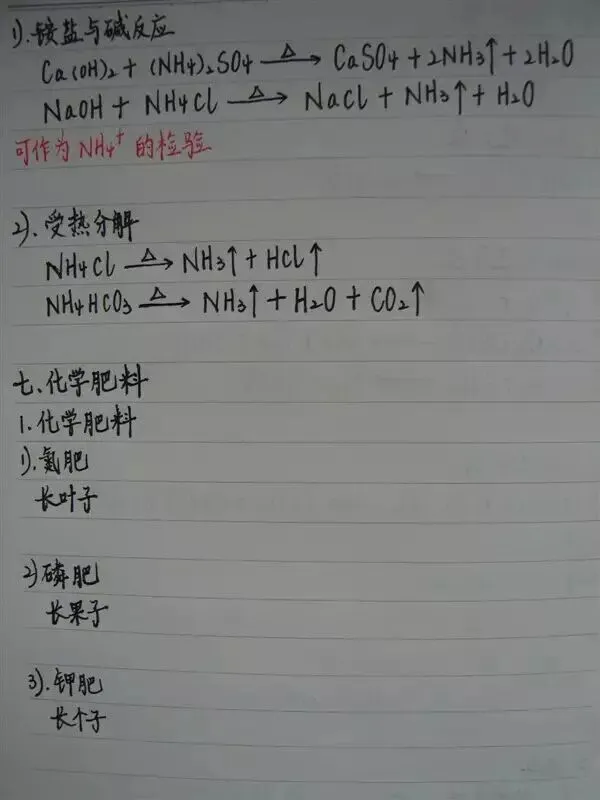 1).铵盐与碱反应
Ca(OH)₂ + (NH₄)₂SO₄ —△→ CaSO₄ + 2NH₃↑ + 2H₂O
NaOH + NH₄Cl —△→ NaCl + NH₃↑ + H₂O
可作为 NH₄⁺ 的检验
2).受热分解
NH₄Cl —△→ NH₃↑ + HCl↑
NH₄HCO₃ —△→ NH₃↑ + H₂O + CO₂↑
七、化学肥料
1.化学肥料
1).氮肥
长叶子
2)磷肥
长果子
3).钾肥
长个子